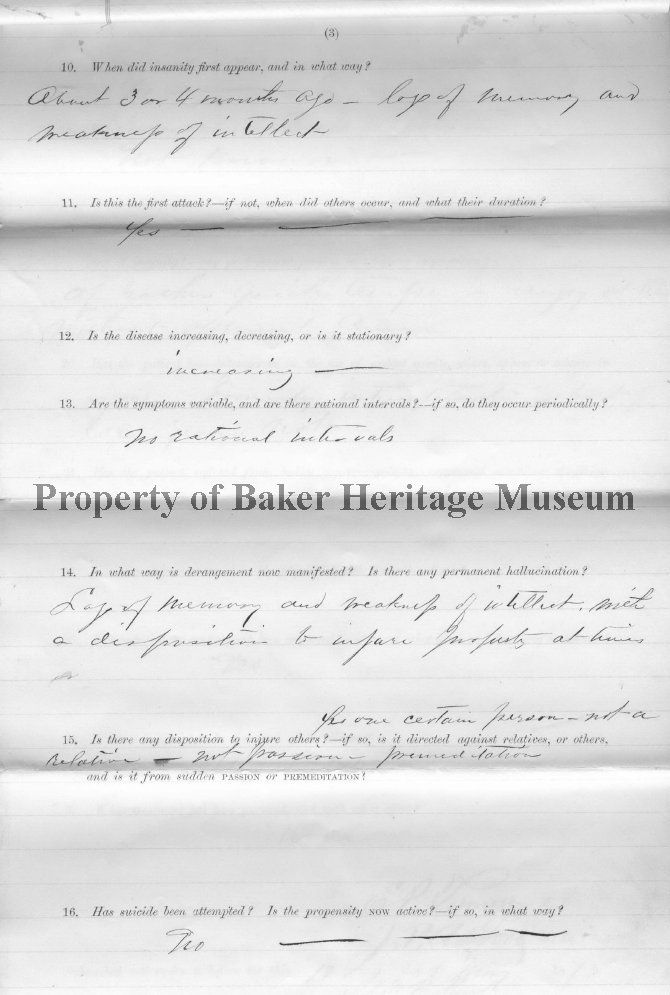 (3)
10. When did insanity first appear, and in what way?
About 3 or 4 months ago – loss of memory and
weakness of intellect
11. Is this the first attack?—if not, when did others occur, and what their duration?
Yes —
12. Is the disease increasing, decreasing, or is it stationary?
increasing —
13. Are the symptoms variable, and are there rational intervals?—if so, do they occur periodically?
no rational intervals
Property of Baker Heritage Museum
14. In what way is derangement now manifested? Is there any permanent hallucination?
Loss of memory and weakness of intellect. with
a disposition to injure property at times
Yes one certain person – not a
15. Is there any disposition to injure others?—if so, is it directed against relatives, or others,
relative – not passion – premeditation
and is it from sudden PASSION or PREMEDITATION?
16. Has suicide been attempted? Is the propensity NOW active?—if so, in what way?
No —